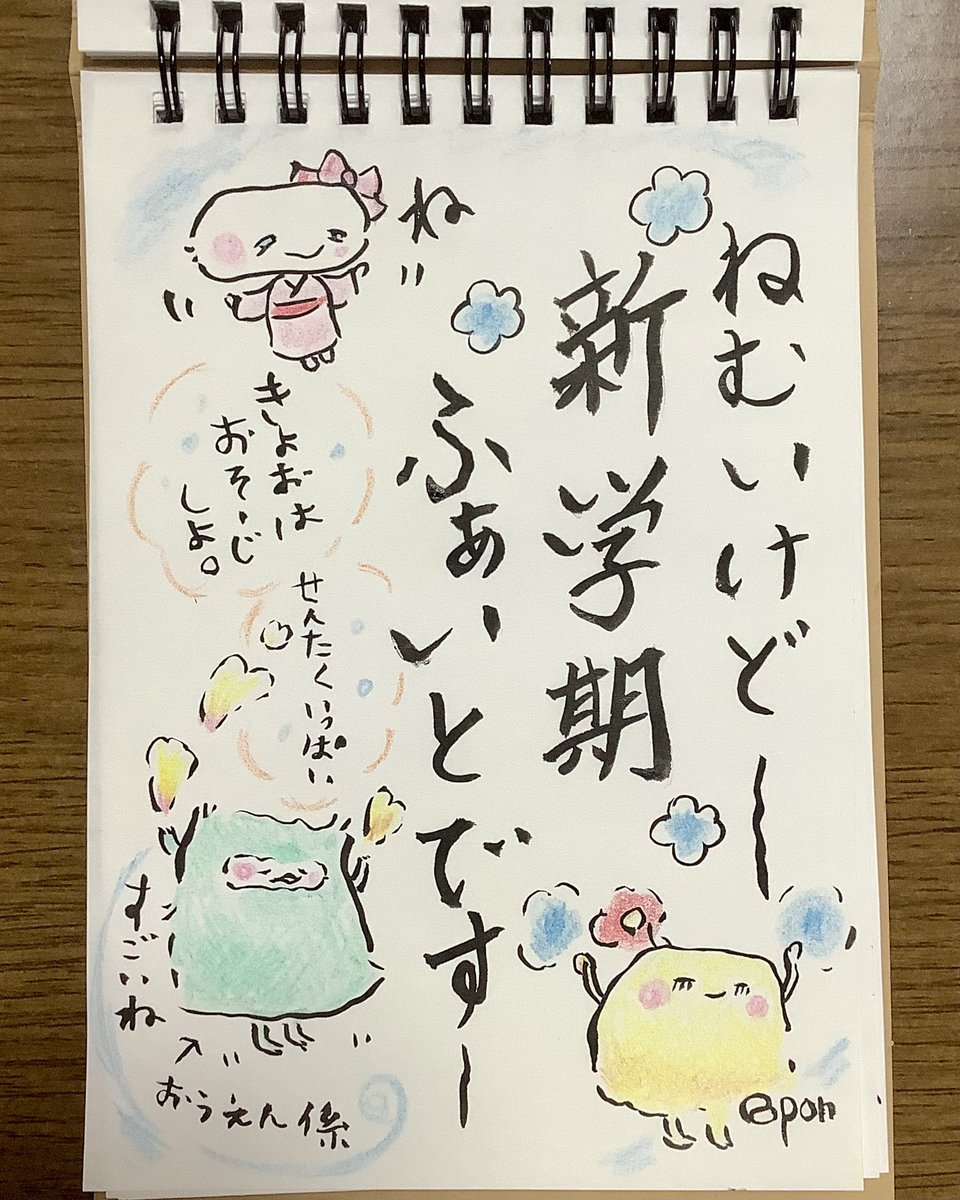 ねむいけどー
新学期
ふぁいとですー
ね
きょおは
おそーじ
しよ。
せんたくいっぱい
すごいね
おうえん係
@pon